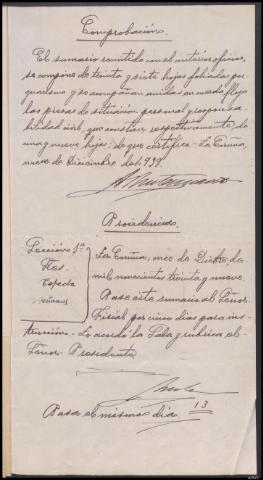 Comprobación
El sumario remitido con el anterior oficio,
se compone de treinta y siete hojas foliadas por
guarismo y se acompañan unidas en cuerda floja
las piezas de situación personal y respons-
abilidad civil, que constan respectivamente de
una y nueve hojas; de que certifico - La Coruña,
nueve de Diciembre de 1,939.
Providencia
Sección 1ª
La Coruña, once de Dicbre. de
mil novecientos treinta y nueve
Pase este sumario al Señor
Fiscal por cinco días para ins-
trucción - Lo acordó la Sala y rubrica el
Señor Presidente
Pasa el mismo día 13